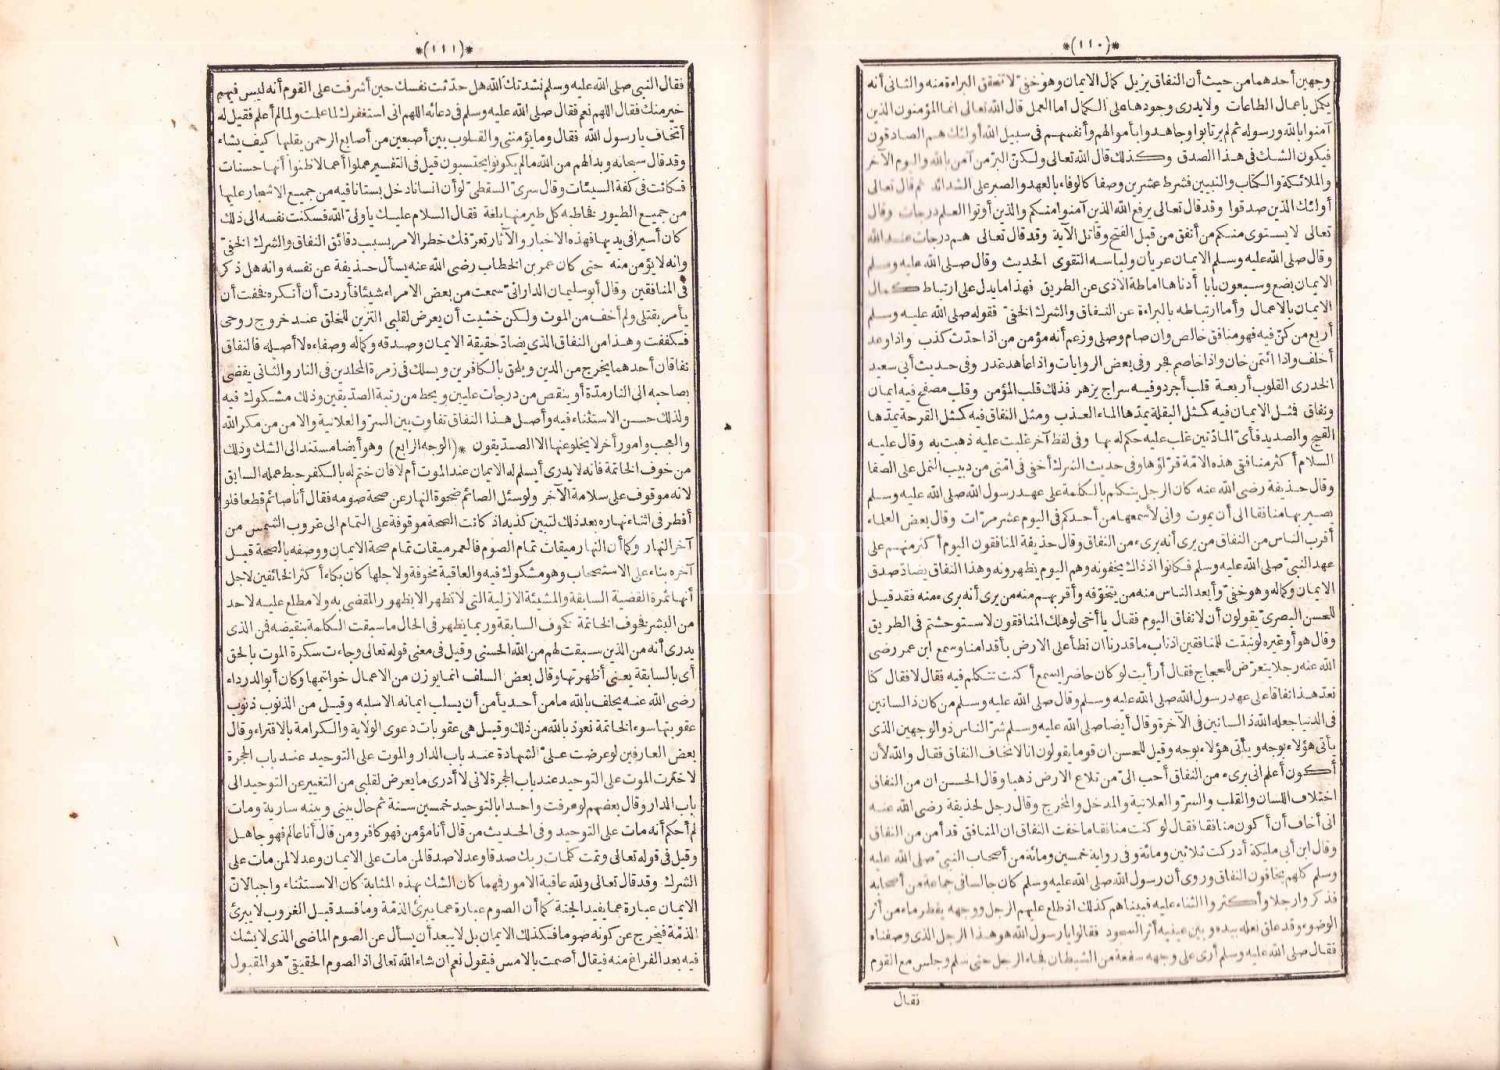 *(١١٠)*
وجهين أحدهما من حيث أن النفاق يزيل كمال الايمان وهو خفى لا تتحقق البراءة منه والثانى أنه
يكمل بأعمال الطاعات ولا يدرى وجودها على الكمال اما العمل قال الله تعالى انما المؤمنون الذين
آمنوا بالله ورسوله ثم لم يرتابوا وجاهدوا بأموالهم وأنفسهم فى سبيل الله أولئك هم الصادقون
فيكون الشك فى هذا الصدق وكذلك قال الله تعالى ولكن البر من آمن بالله واليوم الآخر
والملائكة والكتاب والنبيين فشرط عشرين وصفا كالوفاء بالعهد والصبر على الشدائد ثم قال تعالى
أولئك الذين صدقوا وقد قال تعالى يرفع الله الذين آمنوا منكم والذين أوتوا العلم درجات وقال
تعالى لا يستوى منكم من أنفق من قبل الفتح وقاتل الآية وقد قال تعالى هم درجات عند الله
وقال صلى الله عليه وسلم الايمان عريان ولباسه التقوى الحديث وقال صلى الله عليه وسلم
الايمان بضع وسبعون بابا أدناها اماطة الاذى عن الطريق فهذا ما يدل على ارتباط كمال
الايمان بالاعمال وأما ارتباطه بالبراءة عن النفاق والشرك الخفى فقوله صلى الله عليه وسلم
أربع من كن فيه فهو منافق خالص وان صام وصلى وزعم أنه مؤمن من اذا حدث كذب واذا وعد
أخلف واذا ائتمن خان واذا خاصم فجر وفى بعض الروايات واذا عاهد غدر وفى حديث أبى سعيد
الخدرى القلوب أربعة قلب أجرد وفيه سراج يزهر فذلك قلب المؤمن وقلب مصفح فيه ايمان
ونفاق فمثل الايمان فيه كمثل البقلة يمدها الماء العذب ومثل النفاق فيه كمثل القرحة يمدها
القيح والصديد فأى المادتين غلب عليه حكم له بها وفى لفظ آخر غلبت عليه ذهبت به وقال عليه
السلام أكثر منافقى هذه الامة قراؤها وفى حديث الشرك أخفى فى امتى من دبيب النمل على الصفا
وقال حذيفة رضى الله عنه كان الرجل يتكلم بالكلمة على عهد رسول الله صلى الله عليه وسلم
يصير بها منافقا الى أن يموت وانى لأسمعها من أحدكم فى اليوم عشر مرات وقال بعض العلماء
أقرب الناس من النفاق من يرى أنه برىء من النفاق وقال حذيفة المنافقون اليوم أكثر منهم على
عهد النبى صلى الله عليه وسلم فكانوا اذ ذاك يخفونه وهم اليوم يظهرونه وهذا النفاق يضاد صدق
الايمان وكماله وهو خفى وأبعد الناس منه من يتخوفه وأقربهم منه من يرى أنه برىء منه فقد قيل
للحسن البصرى يقولون أن لا نفاق اليوم فقال يا أخى لو هلك المنافقون لاستوحشتم فى الطريق
وقال هو أو غيره لو نبتت للمنافقين اذناب ما قدرنا ان نطأ على الارض بأقدامنا وسمع ابن عمر رضى
الله عنه رجلا يتعرض للحجاج فقال أرأيت لو كان حاضرا يسمع أكنت تتكلم فيه فقال لا فقال كنا
نعد هذا نفاقا على عهد رسول الله صلى الله عليه وسلم وقال صلى الله عليه وسلم من كان ذا لسانين
فى الدنيا جعله الله ذا لسانين فى الآخرة وقال أيضا صلى الله عليه وسلم شر الناس ذو الوجهين الذى
يأتى هؤلاء بوجه ويأتى هؤلاء بوجه وقيل للحسن ان قوما يقولون انا لا نخاف النفاق فقال والله لأن
أكون أعلم انى برىء من النفاق أحب الى من تلاع الارض ذهبا وقال الحسن ان من النفاق
اختلاف اللسان والقلب والسر والعلانية والمدخل والمخرج وقال رجل لحذيفة رضى الله عنه
انى أخاف أن أكون منافقا فقال لو كنت منافقا ما خفت النفاق ان المنافق قد أمن من النفاق
وقال ابن أبى مليكة أدركت ثلاثين ومائة وفى رواية خمسين ومائة من أصحاب النبى صلى الله عليه
وسلم كلهم يخافون النفاق وروى أن رسول الله صلى الله عليه وسلم كان جالسا فى جماعة من أصحابه
فذكروا رجلا وأكثروا الثناء عليه فبيناهم كذلك اذ طلع عليهم الرجل ووجهه يقطر ماء من أثر
الوضوء وقد علق نعله بيده وبين عينيه أثر السجود فقالوا يا رسول الله هو هذا الرجل الذى وصفناه
فقال صلى الله عليه وسلم أرى على وجهه سفعة من الشيطان فجاء الرجل حتى سلم وجلس مع القوم
فقال
*(١١١)*
فقال النبى صلى الله عليه وسلم نشدتك الله هل حدثت نفسك حين أشرفت على القوم أنه ليس فيهم
خير منك فقال اللهم نعم فقال صلى الله عليه وسلم فى دعائه اللهم انى استغفرك لما علمت ولما لم أعلم فقيل له
أتخاف يا رسول الله فقال وما يؤمننى والقلوب بين أصبعين من أصابع الرحمن يقلبها كيف يشاء
وقد قال سبحانه وبدالهم من الله مالم يكونوا يحتسبون قيل فى التفسير عملوا أعمالا ظنوا أنها حسنات
فكانت فى كفة السيئات وقال سرى السقطى لو أن انسانا دخل بستانا فيه من جميع الاشجار عليها
من جميع الطيور فخاطبه كل طير منها بلغة فقال السلام عليك يا ولى الله فسكنت نفسه الى ذلك
كان أسيرا فى يديها فهذه الاخبار والآثار تعرفك خطر الامر بسبب دقائق النفاق والشرك الخفى
وانه لا يؤمن منه حتى كان عمر بن الخطاب رضى الله عنه يسأل حذيفة عن نفسه وانه هل ذكر
فى المنافقين وقال أبو سليمان الدارانى سمعت من بعض الامراء شيئا فأردت أن أنكره فخفت أن
يأمر بقتلى ولم أخف من الموت ولكن خشيت أن يعرض لقلبى التزين للخلق عند خروج روحى
فكففت وهذا من النفاق الذى يضاد حقيقة الايمان وصدقه وكماله وصفاءه لا أصله فالنفاق
نفاقان أحدهما يخرج من الدين ويلحق بالكافرين ويسلك فى زمرة المخلدين فى النار والثانى يفضى
بصاحبه الى النار مدة أو ينقص من درجات عليين ويحط من رتبة الصديقين وذلك مشكوك فيه
ولذلك حسن الاستثناء فيه وأصل هذا النفاق تفاوت بين السر والعلانية والامن من مكر الله
والعجب وامور أخر لا يخلو عنها الا الصديقون *(الوجه الرابع) وهو أيضا مستند الى الشك وذلك
من خوف الخاتمة فانه لا يدرى أيسلم له الايمان عند الموت أم لا فان ختم له بالكفر حبط عمله السابق
لانه موقوف على سلامة الآخر ولو سئل الصائم ضحوة النهار عن صحة صومه فقال أنا صائم قطعا فلو
أفطر فى اثناء نهاره بعد ذلك لتبين كذبه اذ كانت الصحة موقوفة على التمام الى غروب الشمس من
آخر النهار وكما أن النهار ميقات تمام الصوم فالعمر ميقات تمام صحة الايمان ووصفه بالصحة قبل
آخره بناء على الاستصحاب وهو مشكوك فيه والعاقبة مخوفة ولاجلها كان بكاء أكثر الخائفين لاجل
أنها ثمرة القضية السابقة والمشيئة الازلية التى لا تظهر الا بظهور المقضى به ولا مطلع عليه لاحد
من البشر فخوف الخاتمة كخوف السابقة وربما يظهر فى الحال ما سبقت الكلمة بنقيضه فمن الذى
يدرى أنه من الذين سبقت لهم من الله الحسنى وقيل فى معنى قوله تعالى وجاءت سكرة الموت بالحق
أى بالسابقة يعنى أظهرتها وقال بعض السلف انما يوزن من الاعمال خواتمها وكان أبو الدرداء
رضى الله عنه يحلف بالله ما من أحد يأمن أن يسلب ايمانه الا سلبه وقيل من الذنوب ذنوب
عقوبتها سوء الخاتمة نعوذ بالله من ذلك وقيل هى عقوبات دعوى الولاية والكرامة بالافتراء وقال
بعض العارفين لو عرضت على الشهادة عند باب الدار والموت على التوحيد عند باب الحجرة
لاخترت الموت على التوحيد عند باب الحجرة لانى لا أدرى ما يعرض لقلبى من التغيير عن التوحيد الى
باب الدار وقال بعضهم لو عرفت واحدا بالتوحيد خمسين سنة ثم حال بينى وبينه سارية ومات
لم أحكم أنه مات على التوحيد وفى الحديث من قال أنا مؤمن فهو كافر ومن قال أنا عالم فهو جاهل
وقيل فى قوله تعالى وتمت كلمات ربك صدقا وعدلا صدقا لمن مات على الايمان وعدلا لمن مات على
الشرك وقد قال تعالى ولله عاقبة الامور فمهما كان الشك بهذه المثابة كان الاستثناء واجبا لان
الايمان عبارة عما يفيد الجنة كما أن الصوم عبارة عما يبرئ الذمة وما فسد قبل الغروب لا يبرئ
الذمة فيخرج عن كونه صوما فكذلك الايمان بل لا يبعد أن يسأل عن الصوم الماضى الذى لا يشك
فيه بعد الفراغ منه فيقال أصمت بالامس فيقول نعم ان شاء الله تعالى اذ الصوم الحقيقى هو المقبول
EBU